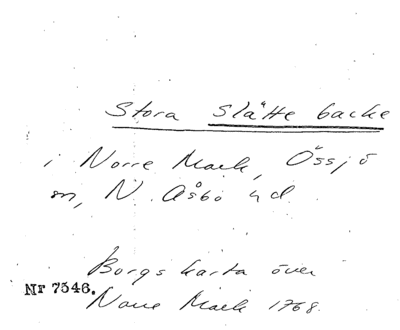 Stora Slätte backe
i Norre Mark, Össjö
sn, N. Åsbo hd
Borgs karta över
Nr 7546.
Norre Mark 1768.